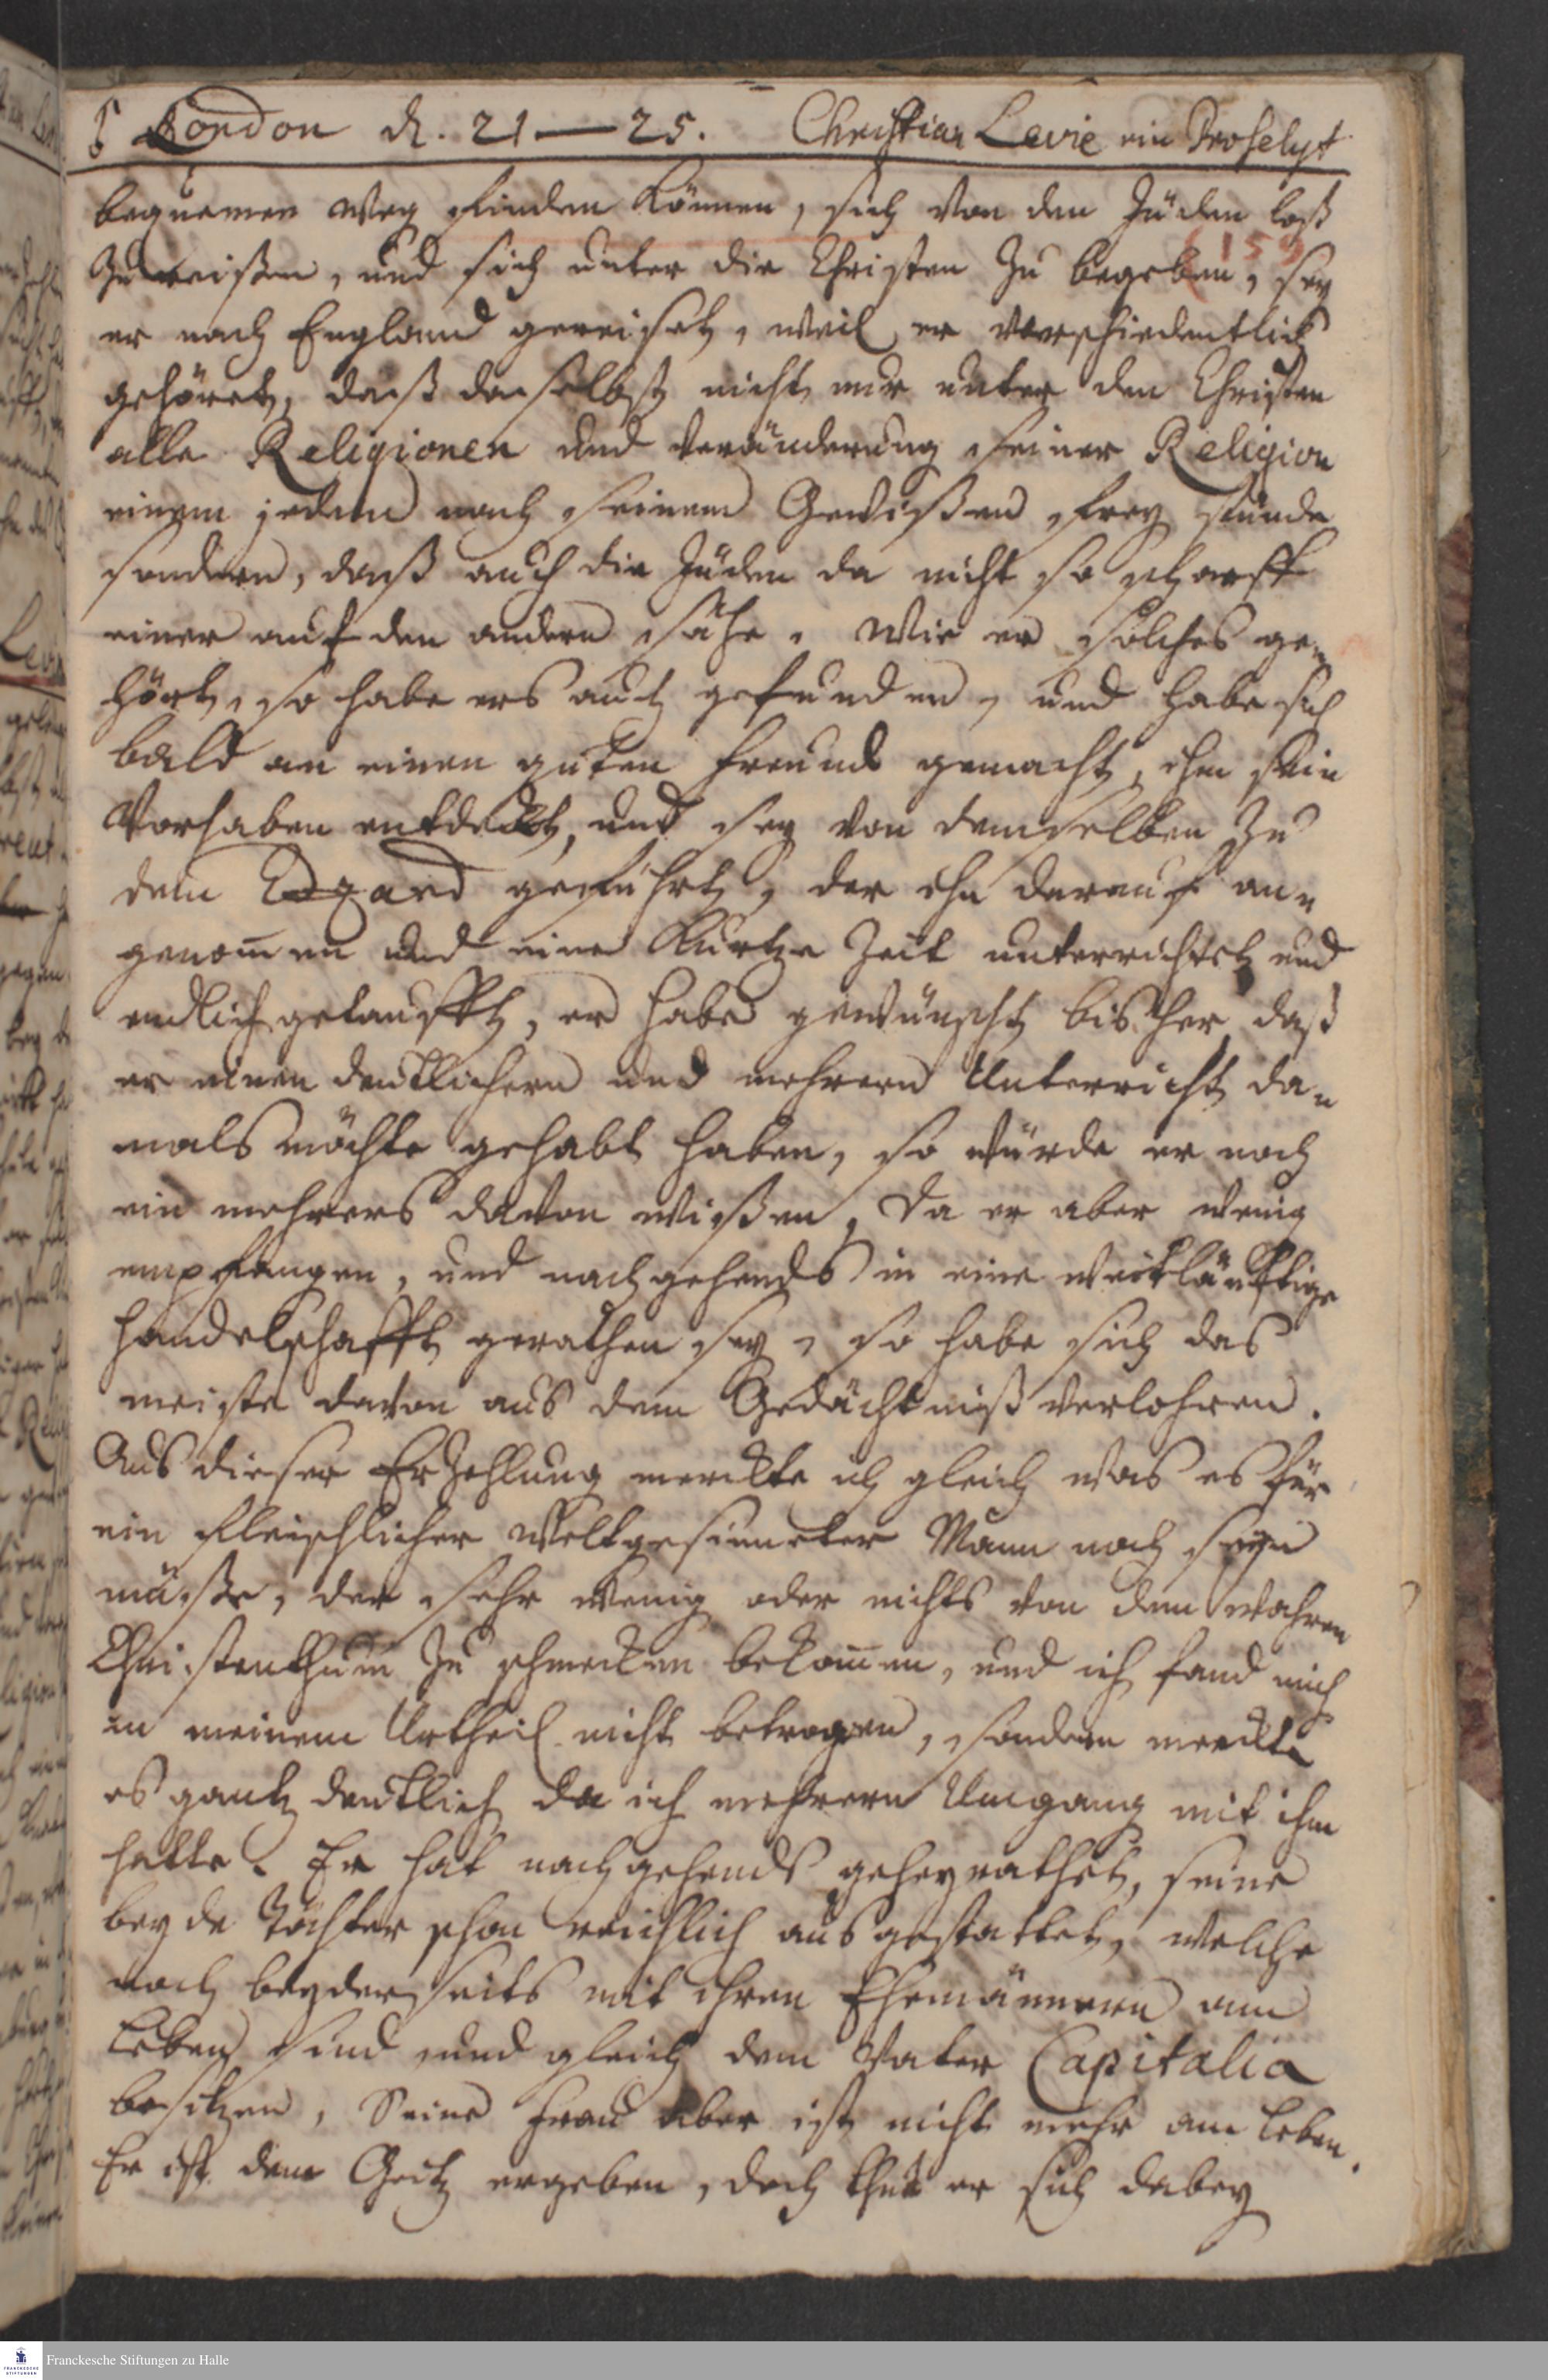 London d. 21 — 25. Christian Levie ein Proselyt
bequemen Weg finden können, sich von den Jüden loß
zu reißen, und sich unter die Christen zu begeben, sey
er nach England gereiset, weil er verschiedentlich
gehöret, daß daselbst nicht nur unter den Christen
alle Religionen und Veränderung seiner Religion
einem jeden nach seinem Gewißen frey stünde
sondern, daß auch die Jüden da nicht so scharff
einer auf den andern sähe. Wie er solches ge-
hört, so habe ers auch gefunden, und habe sich
bald an einen guten Freund gemacht, ihm sein
Vorhaben entdeckt, und sey von demselben zu
dem Edzard geführt, der ihn darauf an-
genom̅en und eine kurtze Zeit unterrichtet und
endlich getaufft, er habe gewünscht bisher, daß
er einen deutlichern und mehrern Unterricht da-
mals möchte gehabt haben, so würde er noch
ein mehrers davon wißen, Da er aber wenig
empfangen, und nachgehends in eine weitläufftige
Handelschafft gerathen sey, so habe sich das
meiste davon aus dem Gedächtniß verlohren.
Aus dieser Erzehlung merckte ich gleich was es für
ein fleischlicher Weltgesinneter Mann noch seyn
müste, der sehr wenig oder nichts von dem wahren
Christenthum zu schmecken bekom̅en, und ich fand mich
in meinem Urtheil nicht betrogen, sondern merckte
es gantz deutlich da ich mehrern Umgang mit ihm
hatte. Er hat nachgehends geheyrathet, seine
beyde Töchter schon reichlich ausgestattet, welche
noch beyderseits mit ihren Ehemännern am
Leben sind und gleich dem Vater Capitalia
besitzen, Seine Frau aber ist nicht mehr am Leben.
Er ist dem Geitz ergeben, doch thut er sich dabey
Franckesche Stiftungen zu Halle